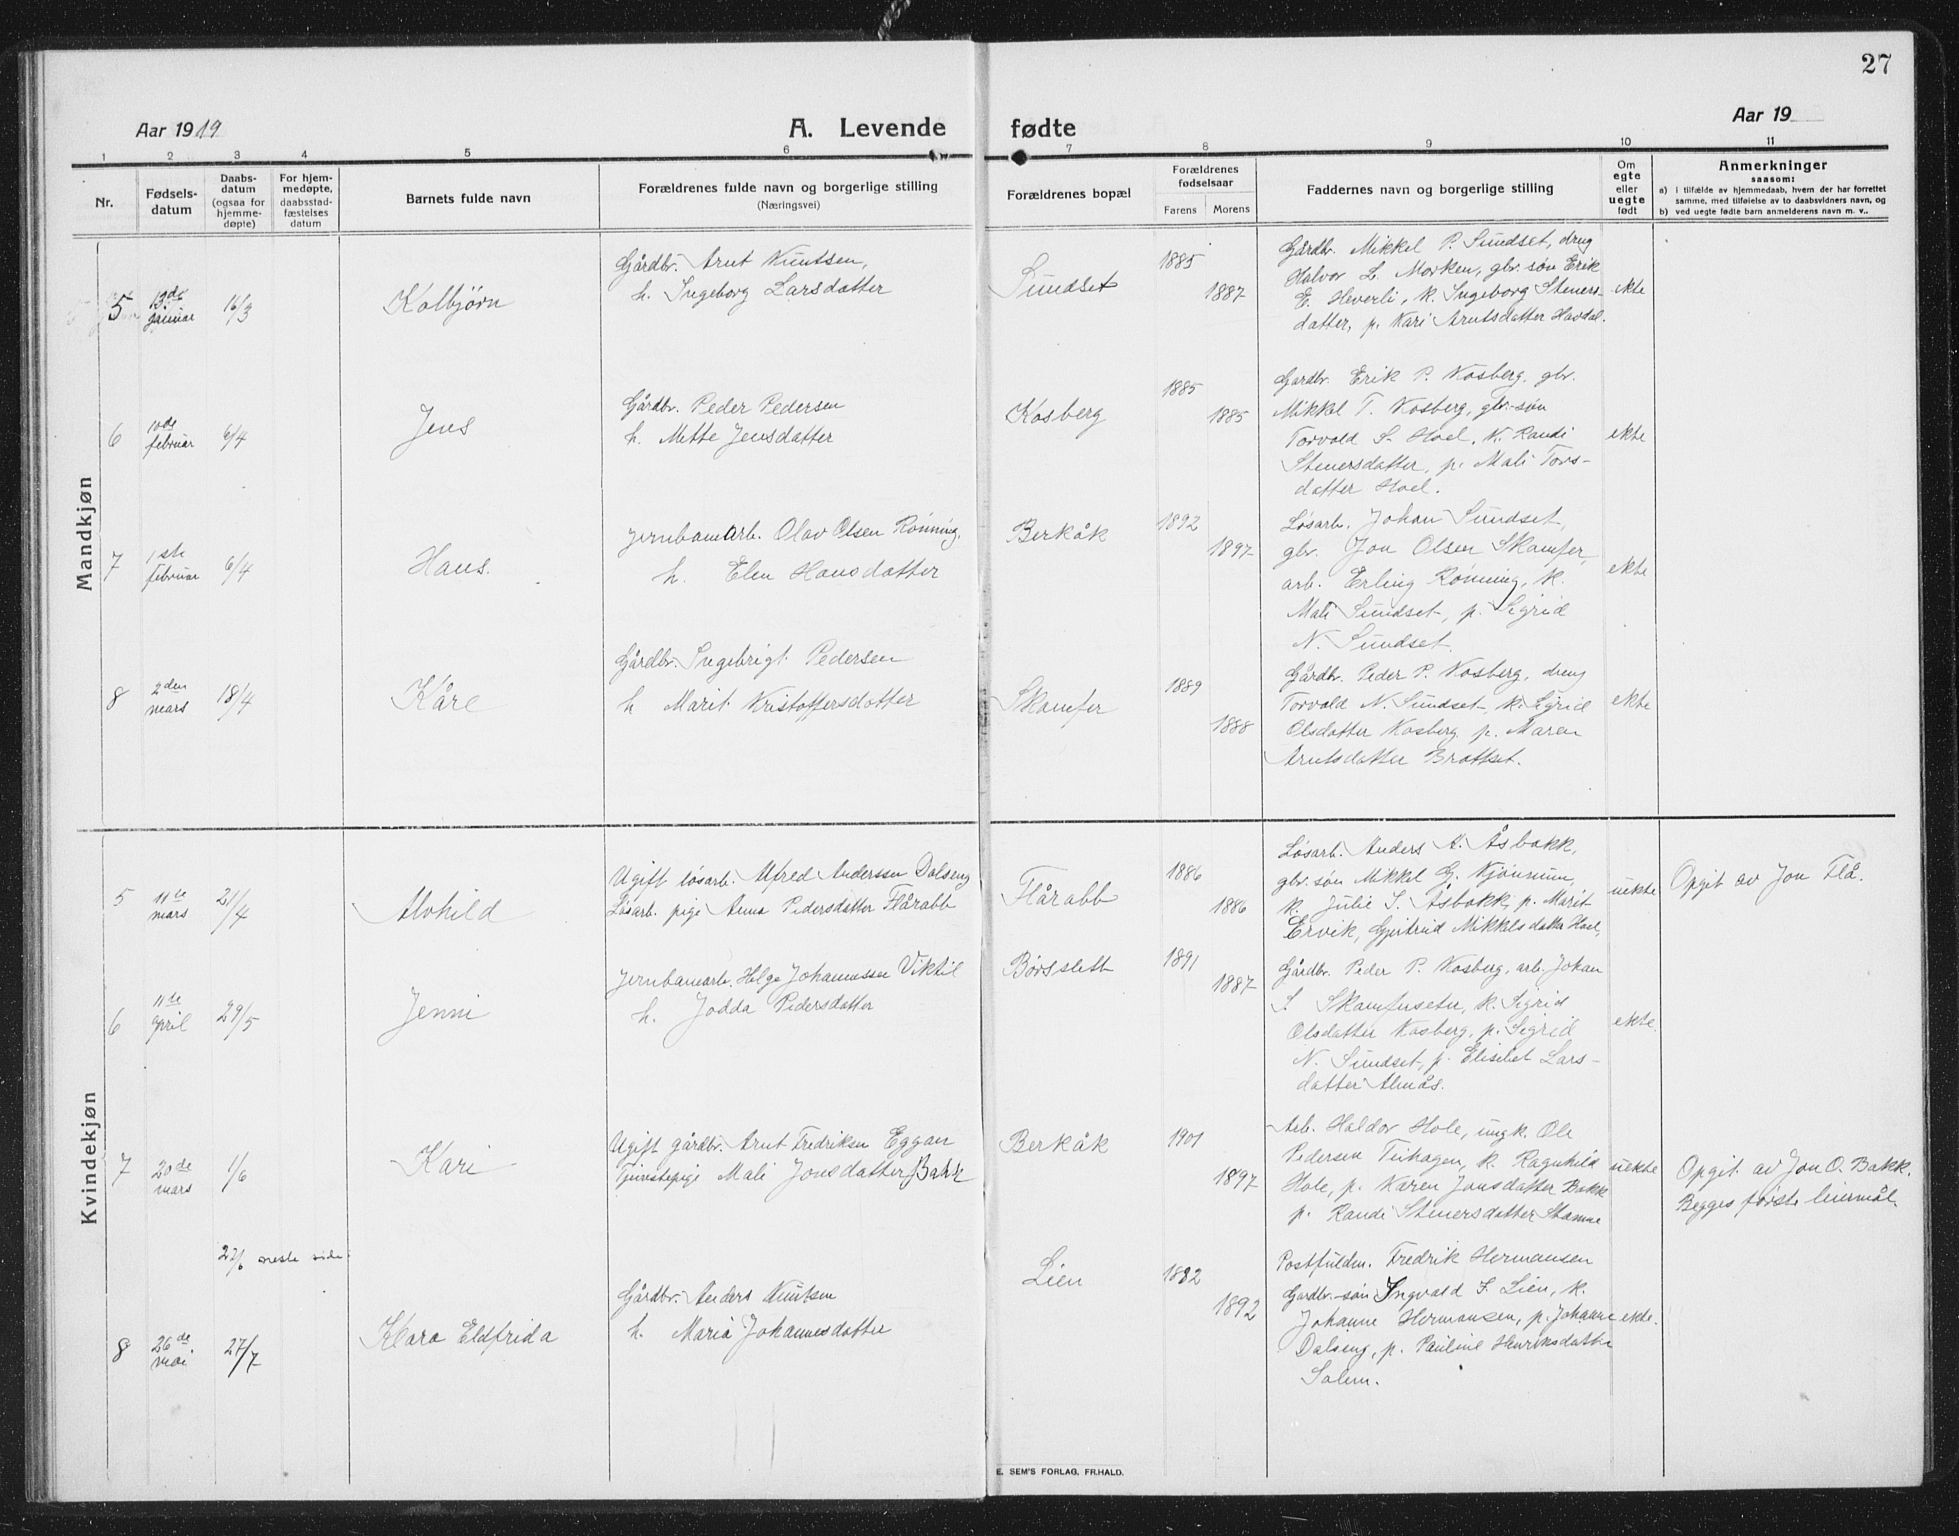 27
Aar 1919
A. Levende fødte
Aar 19
1 2 3 4 5 6 7 8 9 10 11
Nr.
Fødsels-
datum
Daabs-
datum
(ogsaa for
hjemme-
døpte)
For hjem-
medøpte,
daabsstad-
fæstelses
datum
Barnets fulde navn
Forældrenes fulde navn og borgerlige stilling
(Næringsvei)
Forældrenes bopæl
Forældrenes
fødselsaar
Farens Morens
Faddernes navn og borgerlige stilling
Om
egte
eller
uegte
født
Anmerkninger
saasom:
a) i tilfælde av hjemmedaab, hvem der har forrettet
samme, med tilføielse av to daabsvidners navn, og
b) ved uegte fødte barn anmelderens navn m. v..
Mandkjøn
5
januar
16/3
Kolbjørn
Gårdbr. Arnt Knutsen,
h. Ingeborg Larsdatter
Sundset
1885
1887
Gårdbr. Mikkel P. Sundset, dreng
Halvor L. Morken, gbr. søn Erik
E. Heverli, k. Ingeborg Steners-
datter, p. Kari Arntsdatter Havdal.
ekte
6
10de
februar
6/4
Jens
Gårdbr. Peder Pedersen
h. Mette Jensdatter
Kosberg
1885
1885
Gardbr. Erik P. Kosberg, gbr.
Mikkel T. Kosberg, gbr.-søn
Torvald S. Hoel, k. Randi
Stenersdatter, p. Mali Tors-
datter Hoel.
ekte
7
1ste
februar
6/4
Hans.
Jernbanearb. Olav Olsen Rønning,
h. Elen Hansdatter
Berkåk
1892
1897
Løsarb. Johan Sundset,
gbr. Jon Olsen Skamfer,
arb. Erling Rønning, k.
Mali Sundset, p. Sigrid
N. Sundset.
ekte
8
2den
mars
18/4
Kåre
Gårdbr. Ingebrigt Pedersen
h Marit Kristoffersdatter
Skamfer
1889
1888
Gårdbr. Peder P. Kosberg, dreng
Torvald N. Sundset k. Sigrid
Olsdatter Kosberg p. Maren
Arntsdatter Brattset.
ekte
Kvindekjøn
5
11te
mars
21/4
Alvhild
Ugift løsarb. Alfred Anderssen Dalseng
Løsarb. pige Anna Pedersdatter Flårabb
Flårabb
1886
1886
Løsarb. Anders A. Åsbakk,
gbr. søn Mikkel G. Kjønnum,
k. Julie S. Åsbakk, p. Marit
Ervik, Gjertrud Mikkelsdatter Hoel,
uekte
Opgit av Jon Flå.
6
11te
april
29/5
Jenni
Jernbanearb. Helge Johannessen Viktil
h. Jodda Pedersdatter
Børsslett
1891
1887
Gårdbr. Peder P. Kosberg, arb. Johan
S. Skamferseter, k. Sigrid
Olsdatter Kosberg, p. Sigrid
N. Sundset, p. Elisebet Lars-
datter Almås.
ekte.
7
20de
mars
1/6
Kari
Ugift gårdbr. Arnt Fredriksen Eggan
Tjenestepige Mali Jonsdatter Bakk
Berkåk
1901
1897
Arb. Haldor Hole, ungk. Ole
Pedersen k. Ragnhild
Hole, p. Karen Jonsdatter Bakk
p. Randi Stenersdatter Stamne
uekte
Opgit av Jon O. Bakk.
Begges første leiermål.
27/6 neste side
8
26de
mai
27/7
Klara Eldfrida
Gårdbr. Anders Knutsen
h. Maria Johannesdatter
Lien
1882
1892
Postfuldm. Fredrik Hermansen
Gardbr.-søn Ingvald F. Lien, k.
Johanne Hermansen, p. Johanne
Dalseng, p. Pauline Henriksdatter
Solem.
ekte.
E. SEM'S FORLAG, FR.HALD.